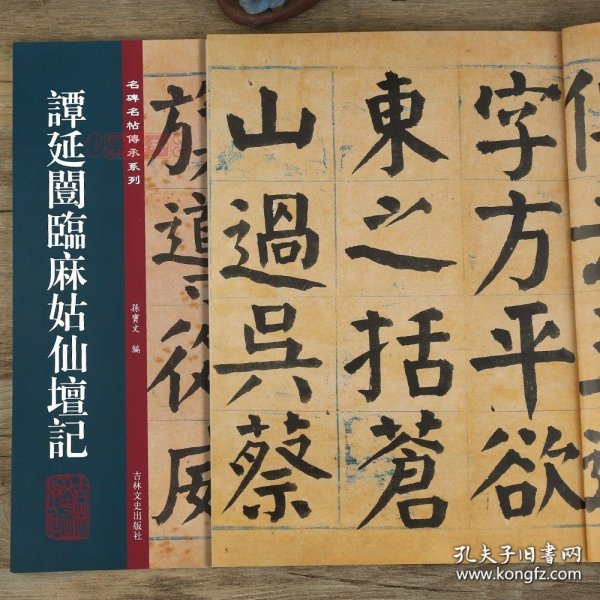 譚延闓臨麻姑仙壇記
名碑名帖傳承系列
孫寶文 編
吉林文史出版社
族道
從
字方平欲
東之括蒼
山過吳蔡
5
孔夫子旧书网
www.kongfz.com